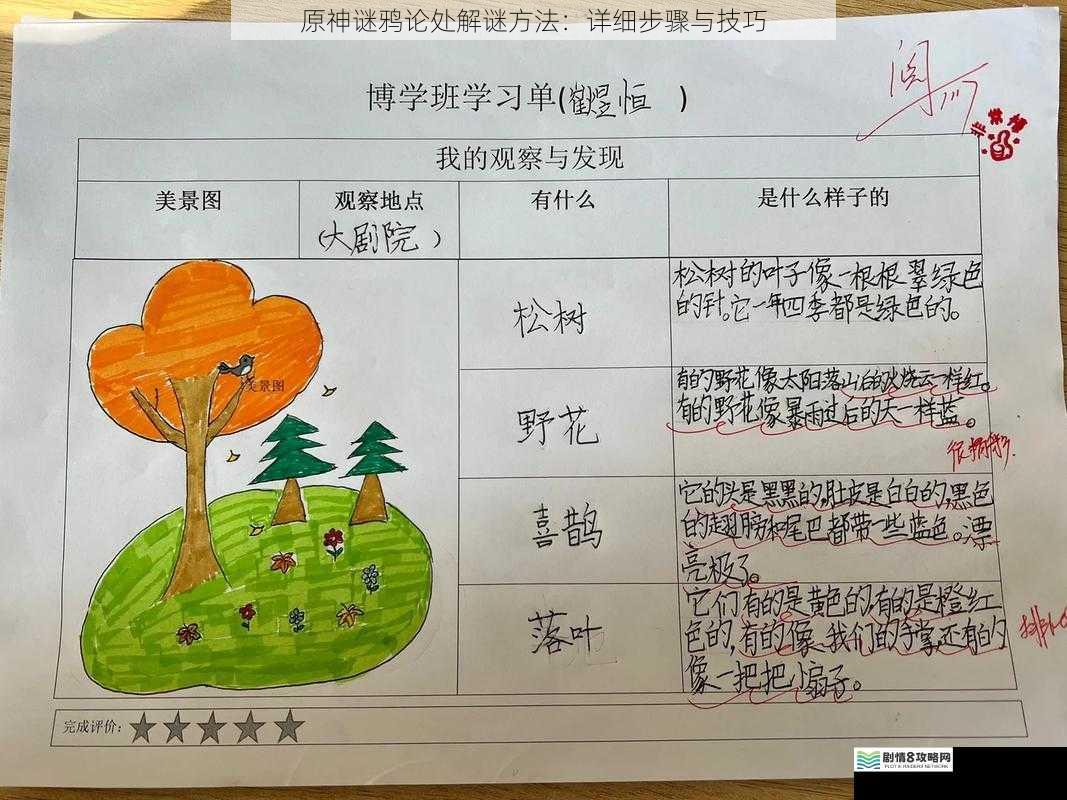 原神谜鸦论处解谜方法：详细步骤与技巧
阅
非常棒
博学班学习单(崔煜恒 )
我的观察与发现
美景图
观察地点
(大剧院)
有什么
是什么样子的
美景图
松树
松树的叶子像一根根翠绿色
的针。它一年四季都是绿色的。
野花
有的野花像太阳落山后的火烧云一样红。
有的野花像暴雨过后的天一样蓝。
很棒
喜鹊
它的头是黑黑的,肚皮是白白的,黑色
的翅膀和尾巴都带一些蓝色。漂
亮极了。
落叶
它们有的是黄色的,有的是橙红
色的,有的像我们的手掌,还有的
像一把把小扇子。
排比
完成评价：★★★★★
剧情8攻略网
PLOT 8 RAIDERS NETWORK